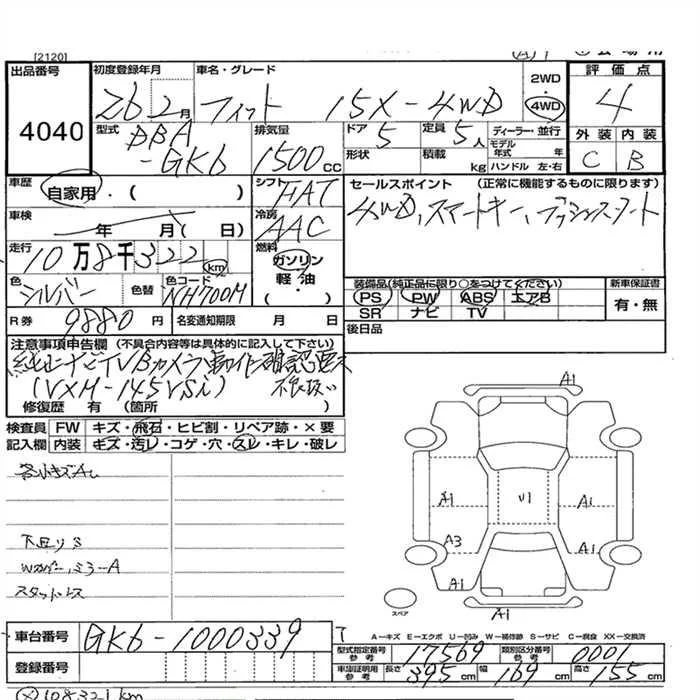 [2120]
出品番号
4040
初度登録年月
26 2月
車名・グレード
フィット 15X-4WD
2WD
4WD
評価点
4
外装 内装
C B
型式
DBA
-GK6
排気量
1500cc
ドア 5
定員 5人
ディーラー・並行
モデル年式 年
形状
積載 kg
ハンドル 左・右
車歴
自家用・( )
シフト FAT
セールスポイント (正常に機能するものに限ります)
4WD、スマートキー、プッシュスタート
車検
年 月( 日)
冷房 AAC
走行
10万8千322km
燃料
ガソリン
軽油
( )
色 シルバー
色替
色コード NH700M
装備品(純正品に限り○をつけてください)
PS PW ABS エアB
SR ナビ TV
新車保証書
有・無
R券 9880円
名変通知期限 月 日
後日品
注意事項申告欄 (不具合内容等は具体的に記入して下さい)
純正ナビTVBカメラ動作確認要
(VXM-145VSi)
修復歴 有 (箇所 )
検査員記入欄
FW キズ・飛石・ヒビ割・リペア跡・×要
内装 キズ・汚レ・コゲ・穴・スレ・キレ・破レ
各小キズAU
下廻りS
Wカバー、ミラーA
スタッドレス
A1
A1
U1
A1
A3
A1
A1
A1
スペア
車台番号
GK6-1000339
登録番号
A-キズ E-エクボ U-凹み W-補修跡 S-サビ C-腐食 XX-交換済
型式指定番号 参考 17569
類別区分番号 参考 0001
車庫証明用 参考 長さ 395cm 幅 169cm 高さ 155cm
(×)108321km